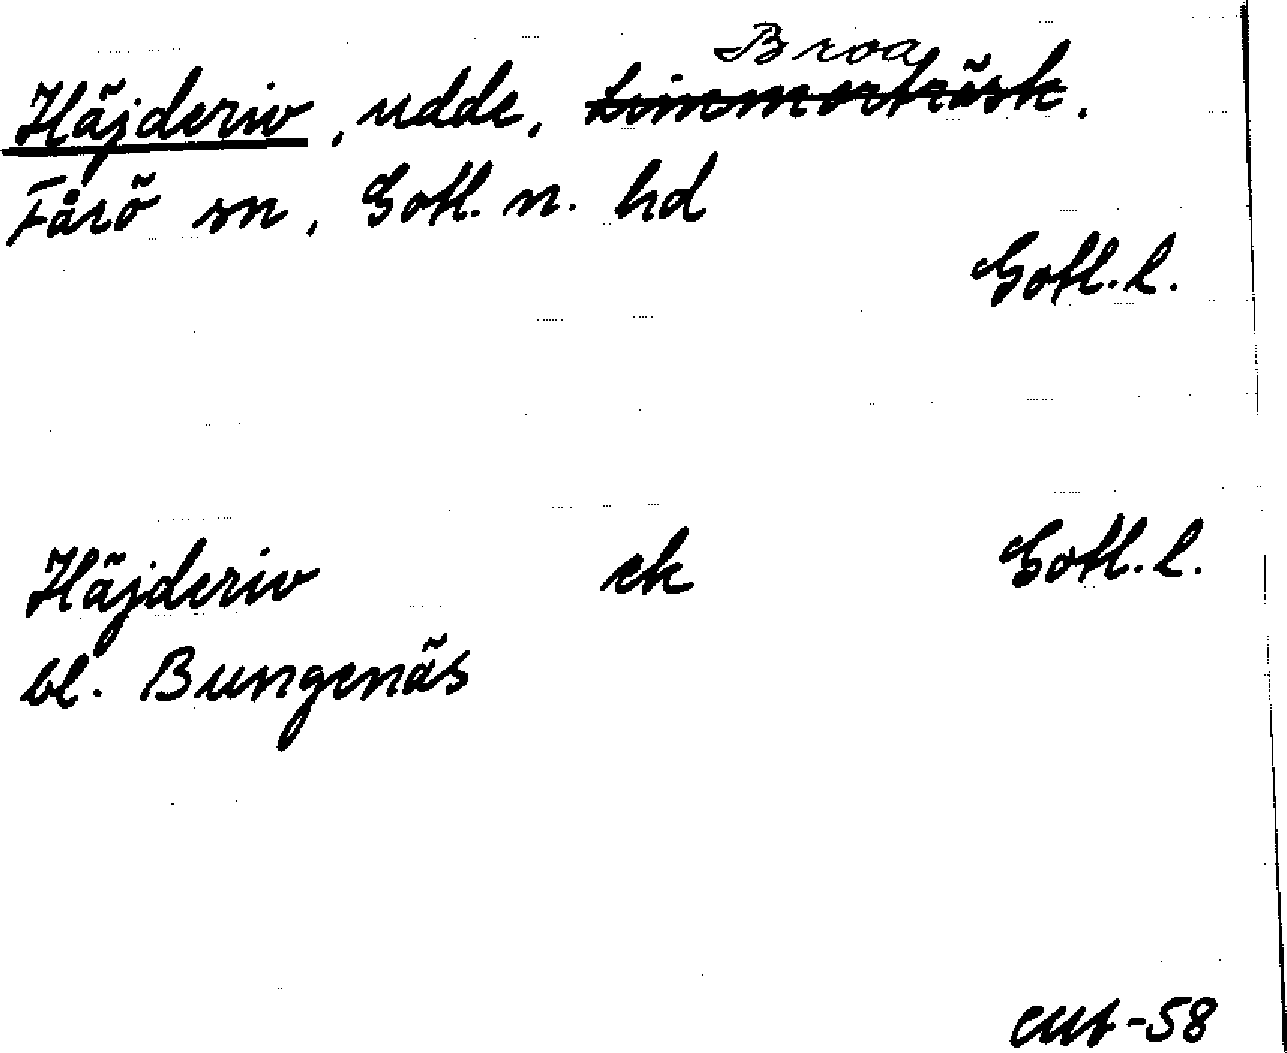 Häjderiv, udde, Broa
Limmorträsk.
Fårö sn, Gotl. n. hd
Gotl. l.
Häjderiv ek Gotl. l.
bl. Bungenäs
-58